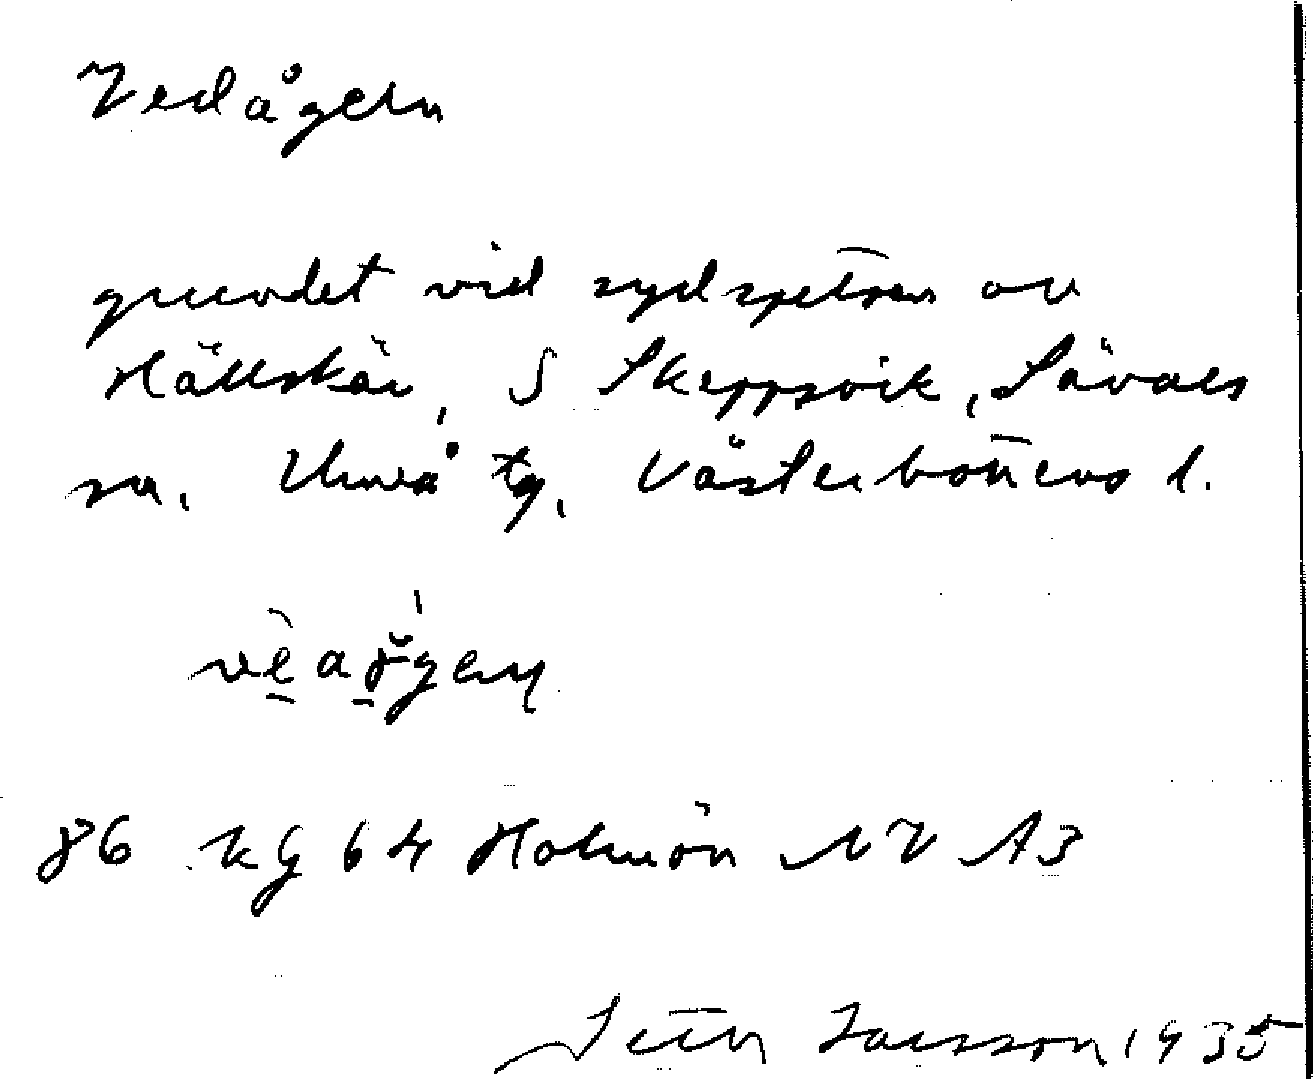 Vedågern
grundet vid sydspetsen av
Hällskär, S Skeppsvik, Sävars
sn. Umeå tg, Västerbottens l.
86 kg 64 Holmön NV A3
Larsson 1935